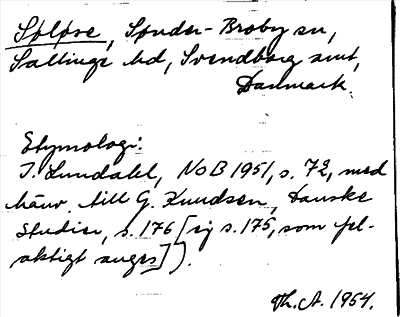 Søløse, Sønder-Broby sn,
Sallinge hd, Svendborg amt,
Danmark.
Etymologi:
I. Lundahl, NoB 1951, s. 72, med
hänv. till G. Knudsen, Danske
Studier, s. 176 [ej s. 175, som fel-
aktigt anges]).
Th. A. 1954.